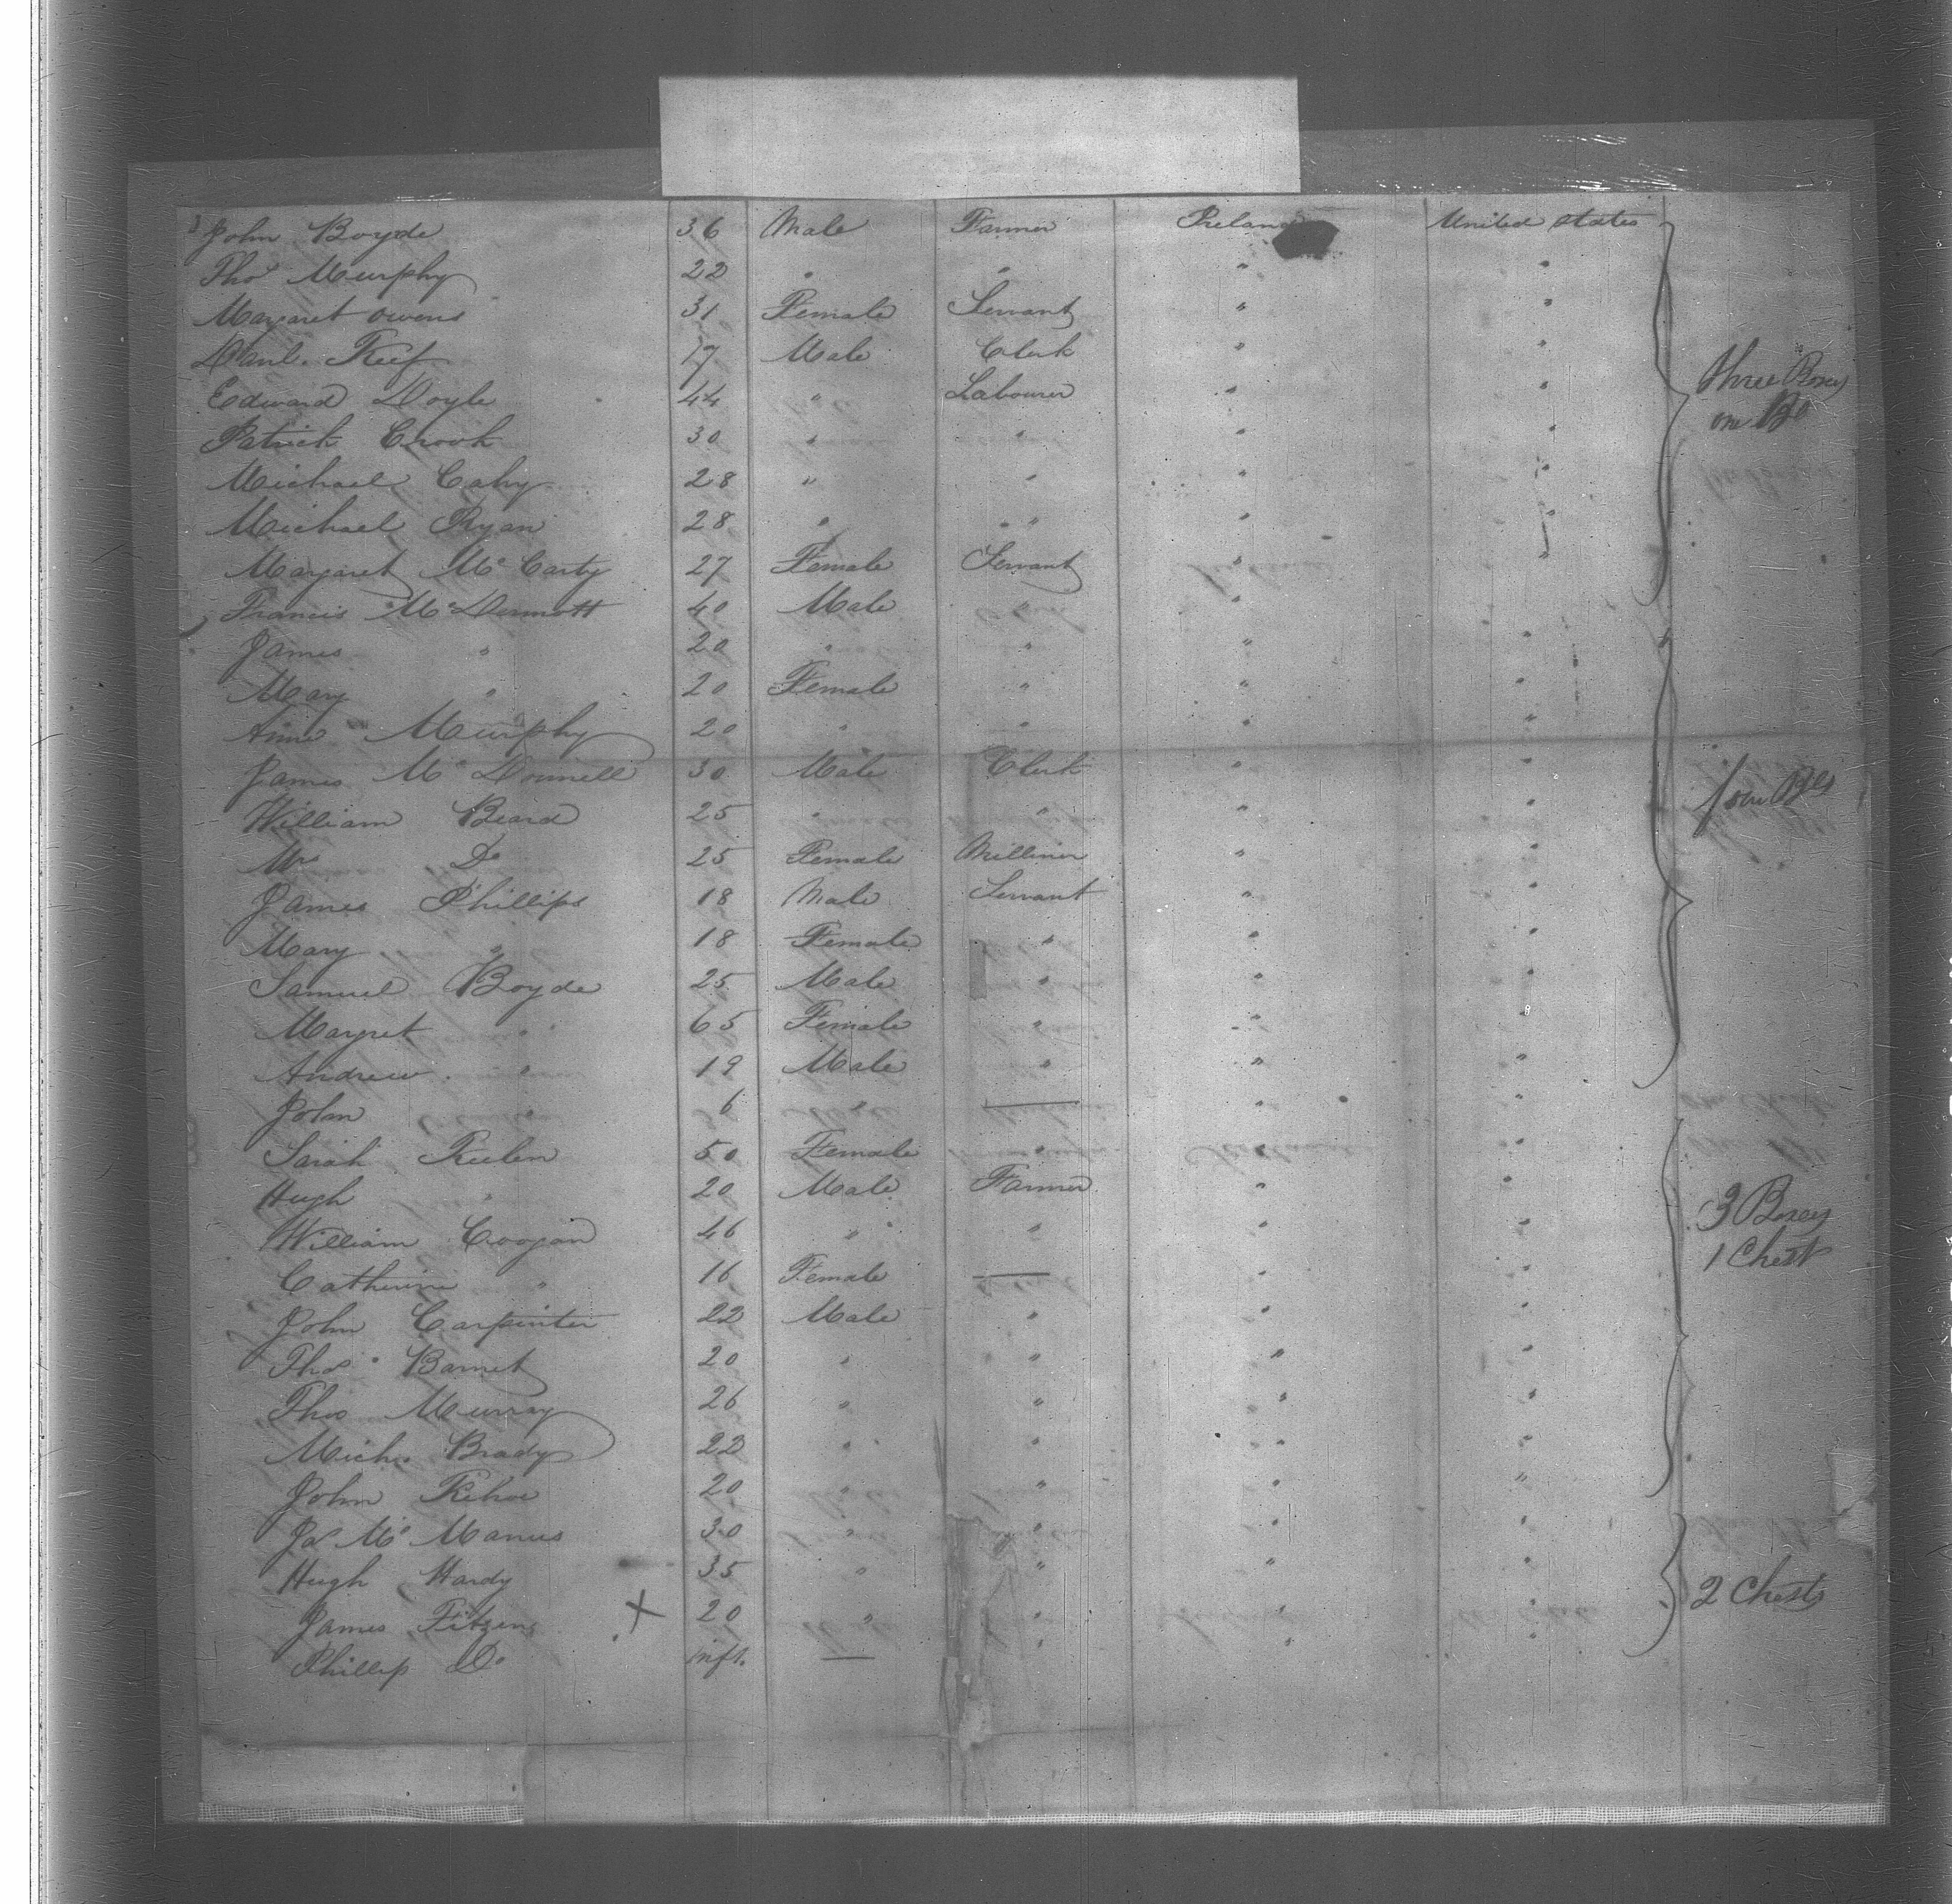 John Boyde 36 Male Farmer Ireland United States
Thos Murphy 22 " " " "
Margaret Owens 31 Female Servant " "
Danl. Keef 17 Male Clerk " "
Edward Doyle 44 " Labourer " "
three Boxes
one Bo
Patrick Crook 30 " " " "
Michael Cahy 28 " " " "
Michael Ryan 28 " " " "
Margaret McCarty 27 Female Servant "
Francis McDermott 40 Male " "
James " 20 " " " "
Mary " 20 Female " " "
Anne Murphy 20 " " " "
James McDonnell 30 Male Clerk " "
William Beard 25 " " " "
Mrs Do 25 Female Milliner " "
James Phillips 18 Male Servant " "
Mary " 18 Female " " "
Samuel Boyde 25 Male " " "
Margret " 65 Female " " "
Andrew " 19 Male " " "
John " 6 — " "
Sarah 50 Female " "
Hugh " 20 Male Farmer " "
3 Boxes
William Coogan 46 " " " "
1 Chest
Catherine " 16 Female — " "
John Carpinter 22 Male " " "
Thos Barnet 20 " " " "
Thos Murray 26 " " " "
Michl. Brady 22 " " " "
John Kehoe 20 " " " "
Js McManus 30 " " " "
Hugh Hardy 35 " " " "
2 Chests
James Fitzen X 20 " " " "
Phillip Do inft. — " " "